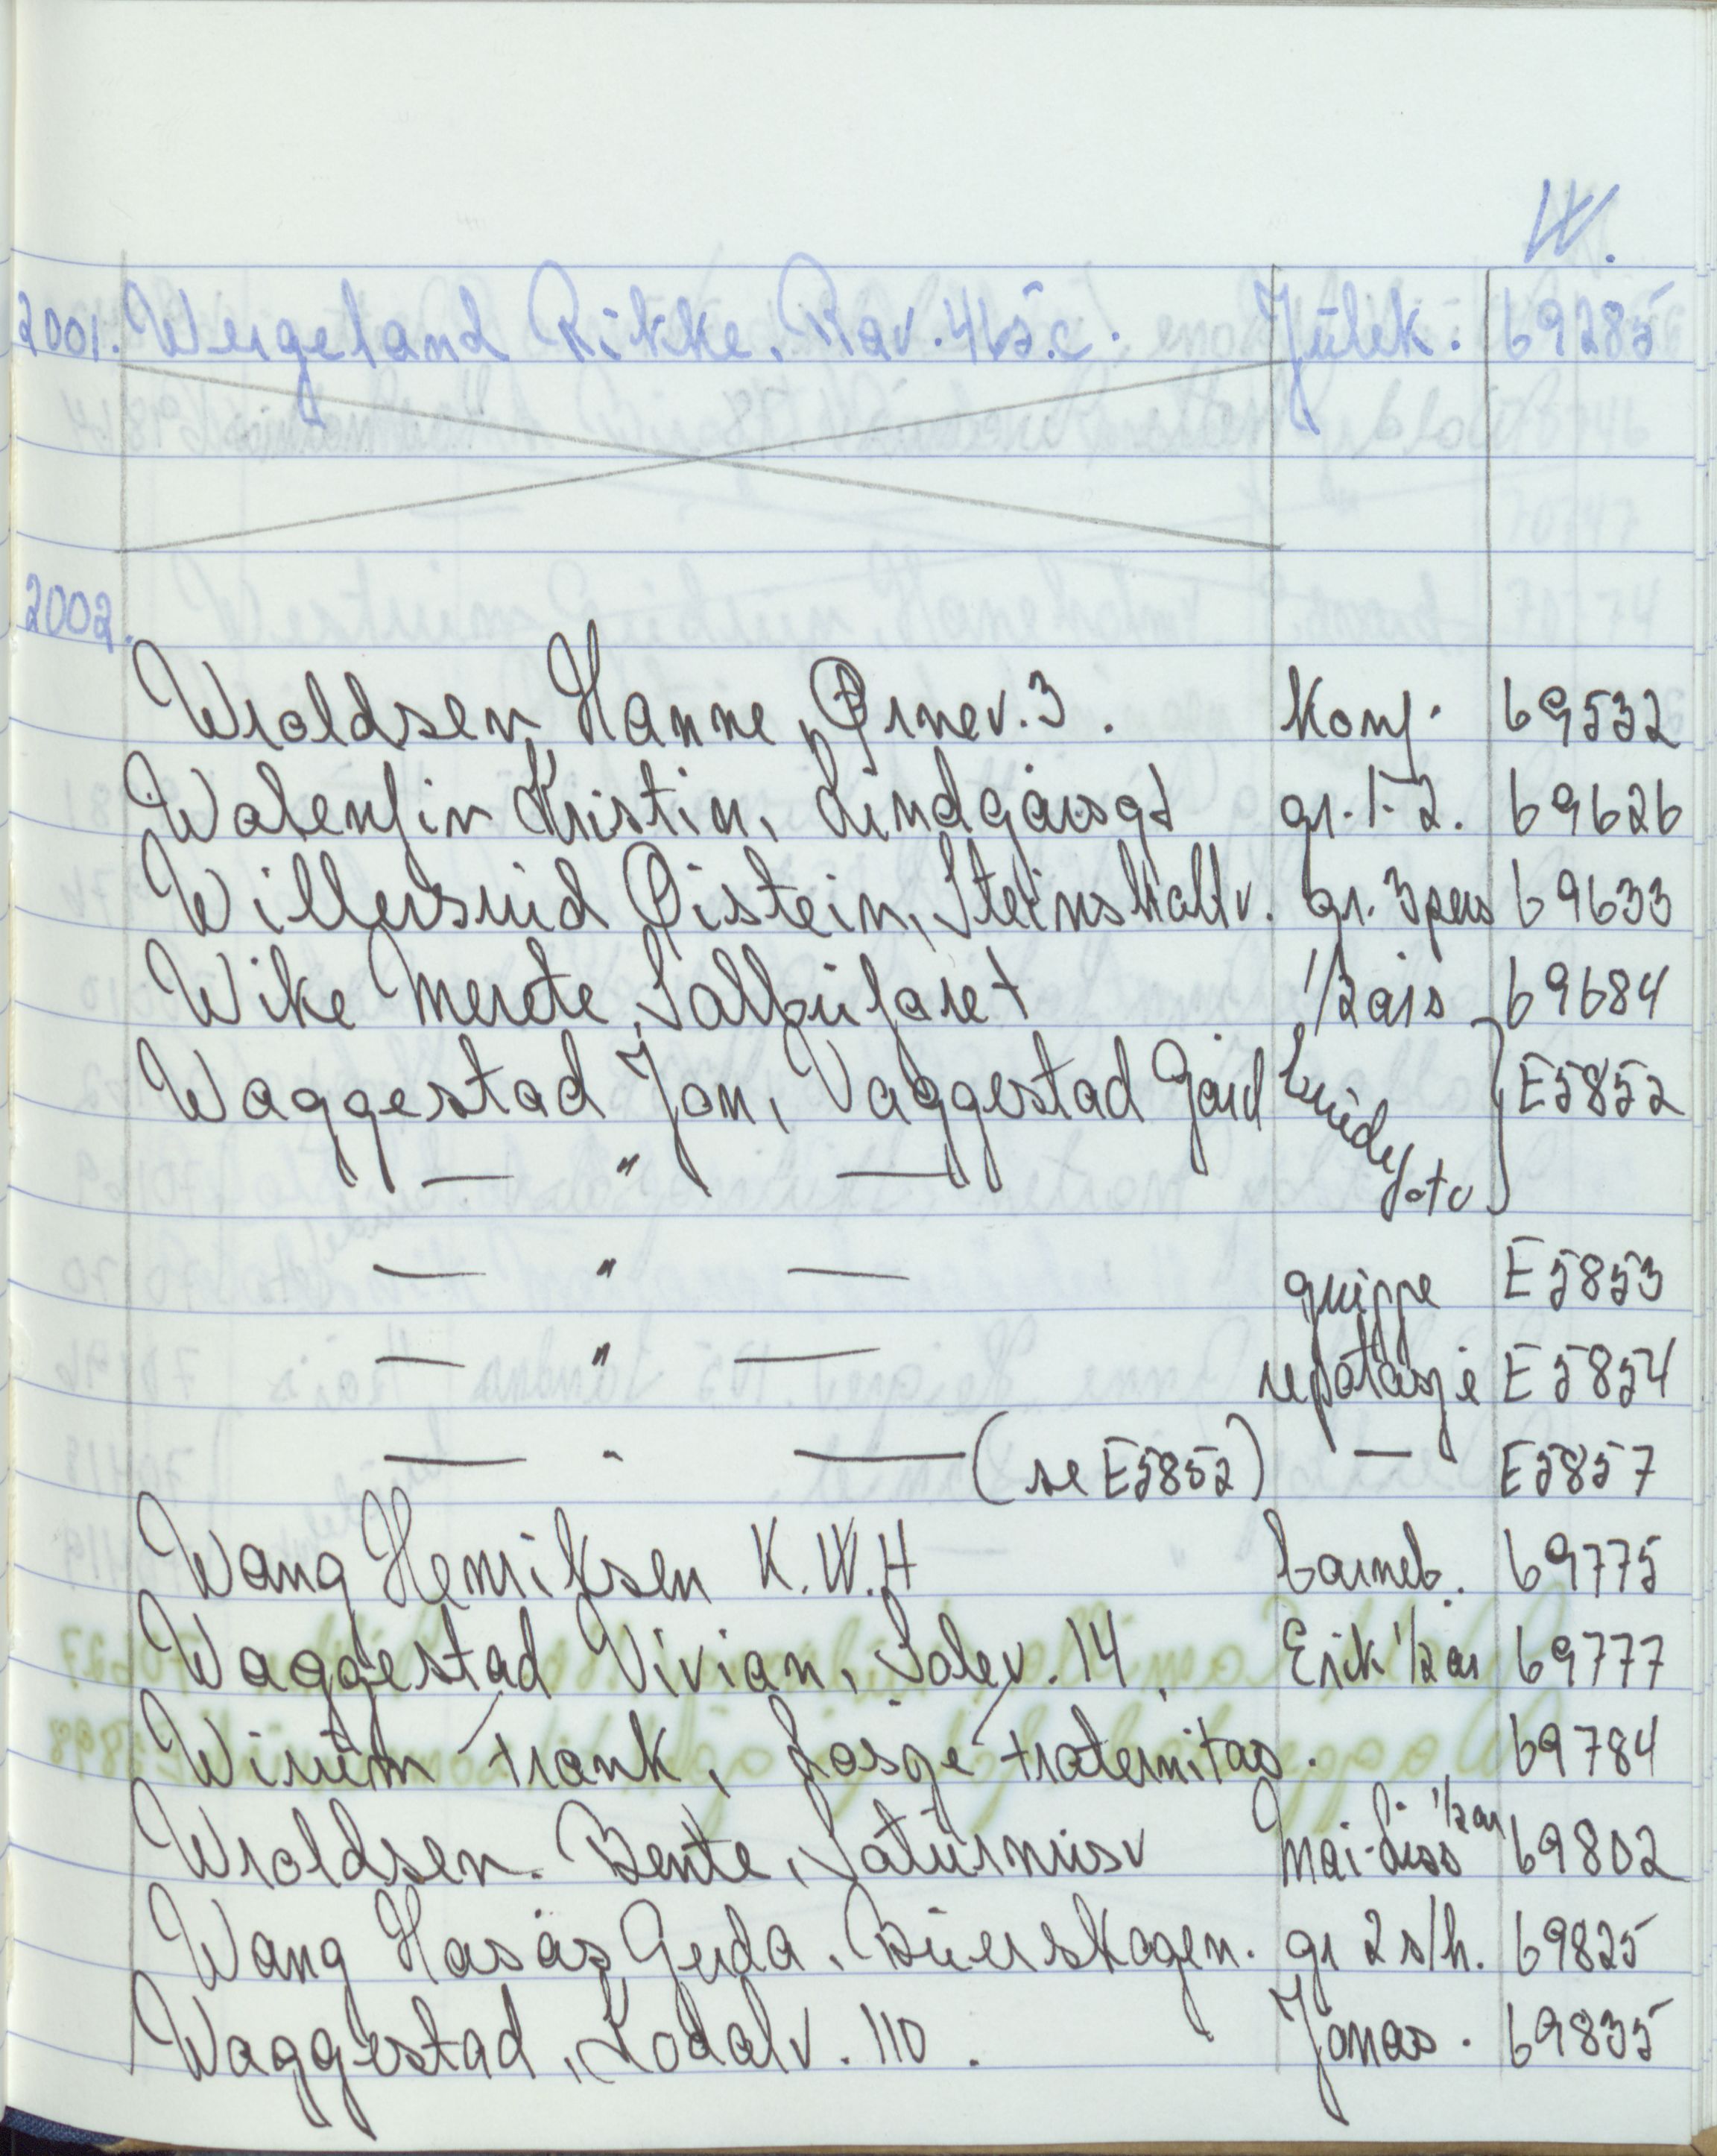 W.
2001. Wergeland Rikke. Rav. 465.c. Julek. 69285
2002.
Wroldsen Hanne, Ørnev. 3. Konf. 69532
Walenfin Kristin, Lindgårsgt gr. 1-2. 69626
Willersrud Øistein, Steinskallv. gr. 3 pers 69633
Wike Merete, Salbufaret 1/2 års 69684
Waggestad Jan, Vaggestad Gård brudefoto } E5852
— " —
— " — gruppe E5853
— " — repotasje E5854
— " — (se E5852) — E5857
Wang Henriksen K.W.H barneb. 69775
Waggestad Vivian, Solev. 14. Erik 1/2 år 69777
Wirum Frank, Losje Fraternitas. 69784
Wroldsen. Bente, Saturnusv Mai-Liss 1/2 år 69802
Wang Hasås Gerda. Buerskogen. gr 2 s/h. 69825
Waggestad, Kodalv. 110. Jonas. 69835